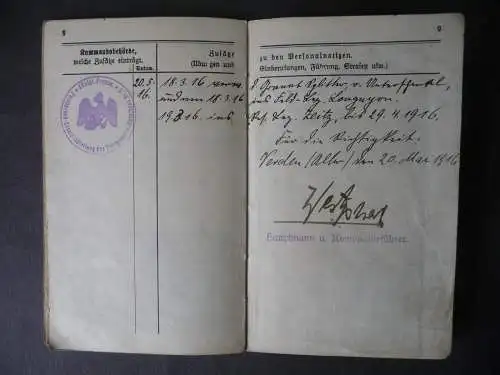 8
Kommandobehörde,
welche Zusätze einträgt.
Datum.
Zusätze
(Abw gen und
20.5.
16.
18.3.16
und am 18.3.16
ins
9
zu den Personalnotizen.
Einberufungen, Führung, Strafen usw.)
d. Granat Splitter, r. Unterschenkel,
ins Feld-Laz. Longuyon.
Res. Laz. Zeitz, bis 29.4.1916.
Für die Richtigkeit.
Verden (Aller) den 20. Mai 1916
Hauptmann u. Kompagnieführer.